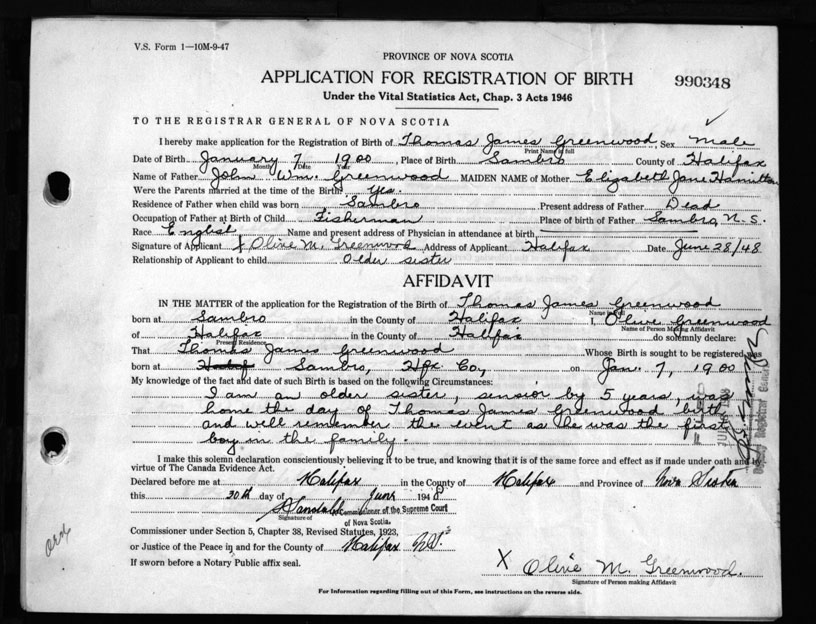 V.S. Form 1—10M-9-47
PROVINCE OF NOVA SCOTIA
APPLICATION FOR REGISTRATION OF BIRTH 990348
Under the Vital Statistics Act, Chap. 3 Acts 1946
TO THE REGISTRAR GENERAL OF NOVA SCOTIA
I hereby make application for the Registration of Birth of Thomas James Greenwood Sex Male
Print Name in full
Date of Birth January 7 1900, Place of Birth Sambro County of Halifax
Month Date Year
Name of Father John Wm. Greenwood MAIDEN NAME of Mother Elizabeth Jane Hamilton
Were the Parents married at the time of the Birth? Yes.
Residence of Father when child was born Sambro Present address of Father Dead
Occupation of Father at Birth of Child Fisherman Place of birth of Father Sambro, N.S.
Race English Name and present address of Physician in attendance at birth,
Signature of Applicant X Olive M. Greenwood Address of Applicant Halifax Date June 28/48
Relationship of Applicant to child Older sister
AFFIDAVIT
IN THE MATTER of the application for the Registration of the Birth of Thomas James Greenwood
Name in full
born at Sambro in the County of Halifax I, Olive Greenwood
Name of Person Making Affidavit
of Halifax in the County of Halifax do solemnly declare:
Present Residence
That Thomas James Greenwood Whose Birth is sought to be registered was
born at Sambro, Hfx Co, on Jan. 7, 1900
My knowledge of the fact and date of such Birth is based on the following Circumstances:
I am an older sister, senior by 5 years, was
home the day of Thomas James Greenwood birth
and well remember the event as he was the first
boy in the family.
I make this solemn declaration conscientiously believing it to be true, and knowing that it is of the same force and effect as if made under oath and by
virtue of The Canada Evidence Act.
Declared before me at Halifax in the County of Halifax and Province of Nova Scotia
this 30th day of June 1948
Commissioner of the Supreme Court
Signature of
of Nova Scotia.
Commissioner under Section 5, Chapter 38, Revised Statutes, 1923,
or Justice of the Peace in and for the County of Halifax N.S.
If sworn before a Notary Public affix seal.
X Olive M. Greenwood.
Signature of Person making Affidavit
For Information regarding filling out of this Form, see instructions on the reverse side.